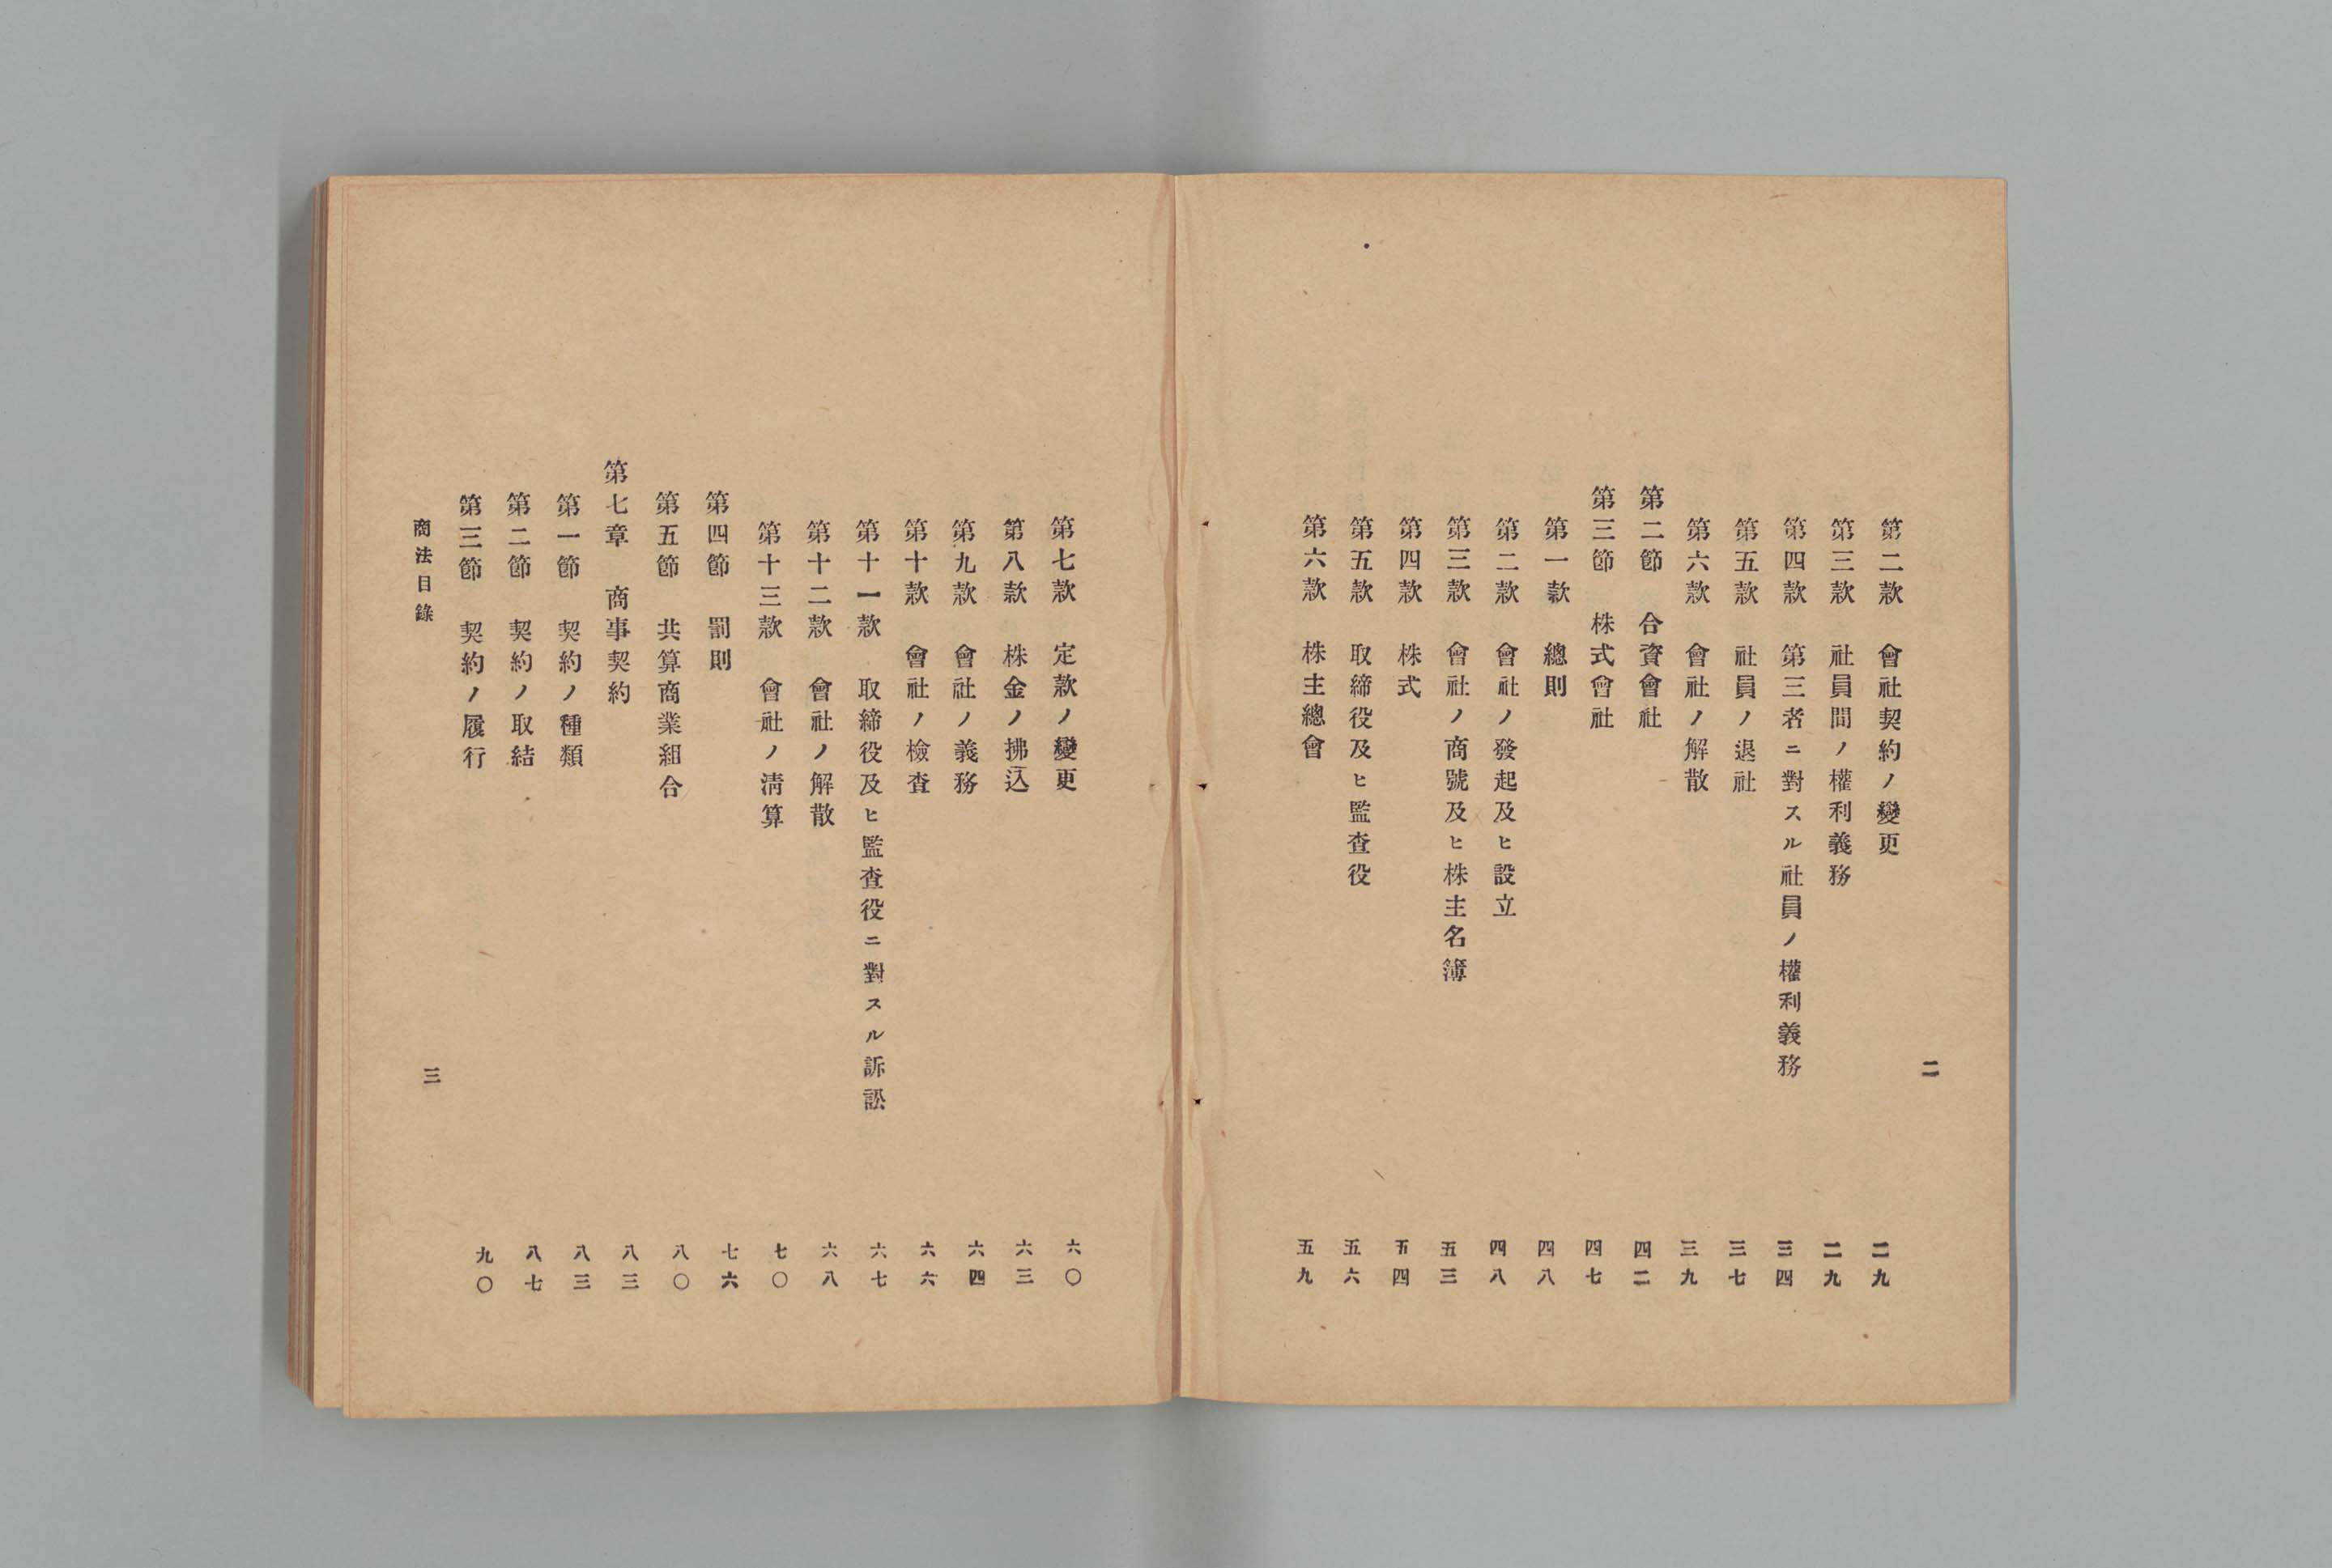 二
第二款　會社契約ノ變更　二九
第三款　社員間ノ權利義務　二九
第四款　第三者ニ對スル社員ノ權利義務　三四
第五款　社員ノ退社　三七
第六款　會社ノ解散　三九
第二節　合資會社　四二
第三節　株式會社　四七
第一款　總則　四八
第二款　會社ノ發起及ヒ設立　四八
第三款　會社ノ商號及ヒ株主名簿　五三
第四款　株式　五四
第五款　取締役及ヒ監査役　五六
第六款　株主總會　五九
第七款　定款ノ變更　六〇
第八款　株金ノ拂込　六三
第九款　會社ノ義務　六四
第十款　會社ノ檢査　六六
第十一款　取締役及ヒ監査役ニ對スル訴訟　六七
第十二款　會社ノ解散　六八
第十三款　會社ノ淸算　七〇
第四節　罰則　七六
第五節　共算商業組合　八〇
第七章　商事契約　八三
第一節　契約ノ種類　八三
第二節　契約ノ取結　八七
第三節　契約ノ履行　九〇
商法目錄　三